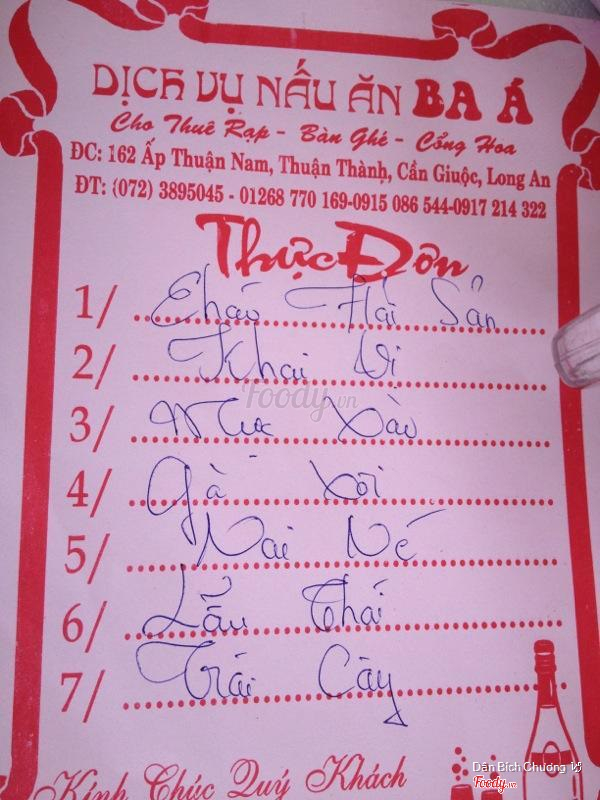 DỊCH VỤ NẤU ĂN BA Á
Cho Thuê Rạp - Bàn Ghế - Cổng Hoa
ĐC: 162 Ấp Thuận Nam, Thuận Thành, Cần Giuộc, Long An
ĐT: (072) 3895045 - 01268 770 169-0915 086 544-0917 214 322
Thực Đơn
1/ Cháo Hải Sản
2/ Khai Vị
Foody.vn
3/ Mực Xào
4/ Gà Xôi
5/ Nai Né
6/ Lẩu Thái
7/ Trái Cây
Kính Chúc Quý Khách
Dân Bich Chương
Foody.vn